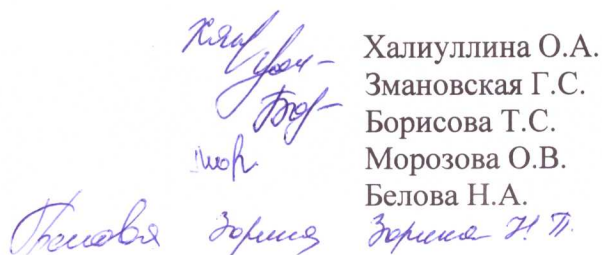 Халиуллина О.А.
Змановская Г.С.
Борисова Т.С.
Морозова О.В.
Белова Н.А.
Зорина Зорина Н. П.